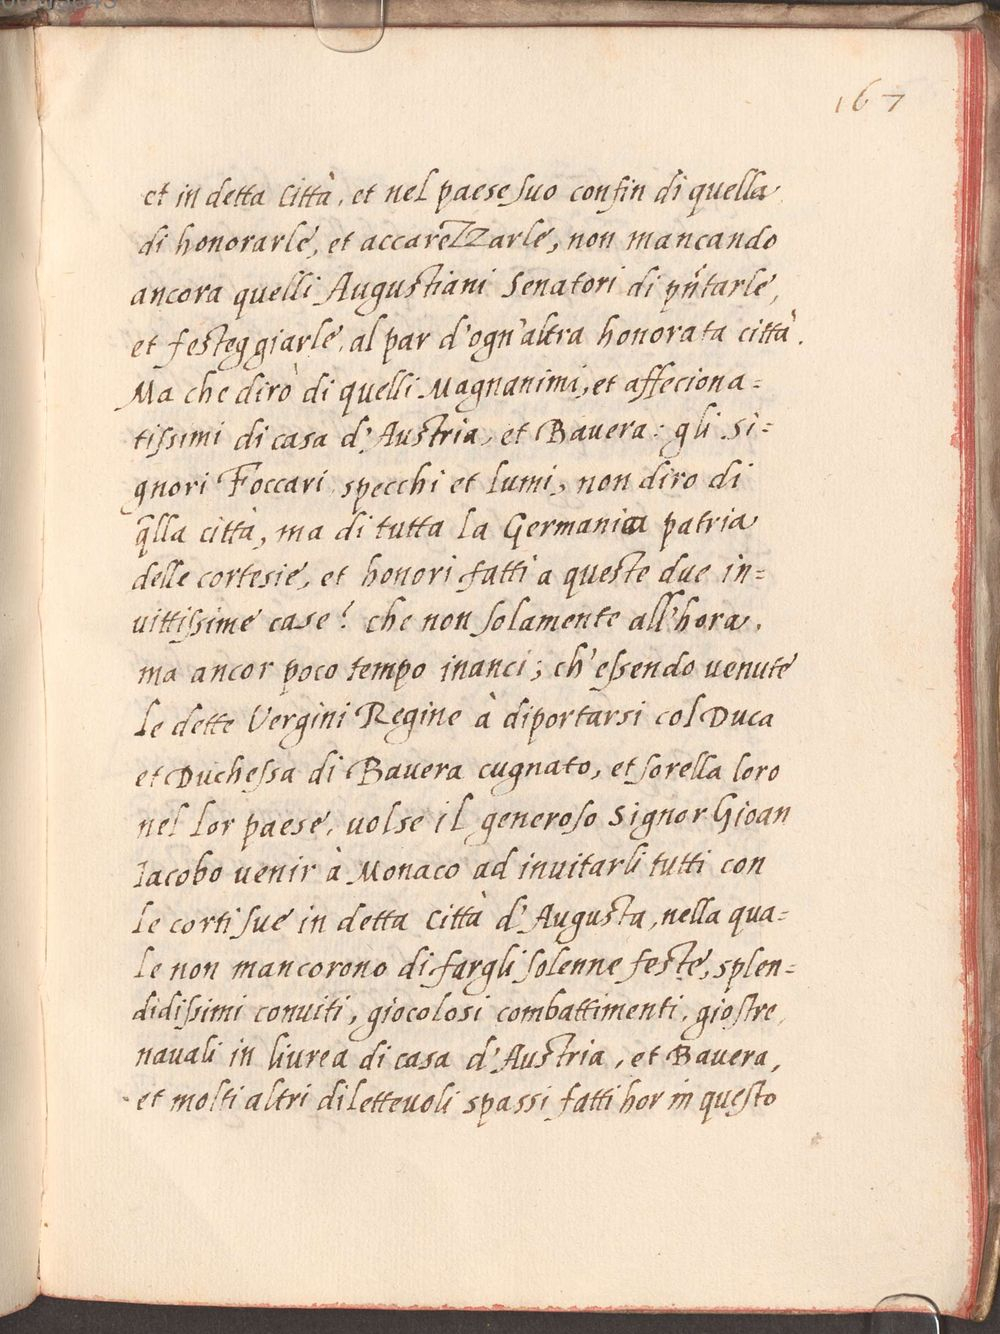 167
et in detta Città, et nel paese suo confin di quella
di honorarle, et accarezzarle, non mancando
ancora quelli Augustiani Senatori di pñtarle,
et festeggiarle, al par d'ogn'altra honorata città.
Ma che dirò di quelli Magnanimi, et affeciona=
tissimi di casa d'Austria, et Bauera: gli Si=
gnori Foccari specchi et lumi, non diro di
q̃lla città, ma di tutta la Germania patria
delle cortesie, et honori fatti a queste due in=
uittissime case? che non solamente all'hora,
ma ancor poco tempo inanci; ch'essendo uenute
le dette Vergini Regine à diportarsi col Duca
et Duchessa di Bauera cugnato, et sorella loro
nel lor paese, uolse il generoso Signor Gioan
Iacobo uenir à Monaco ad inuitarli tutti con
le corti sue in detta Città d'Augusta, nella qua=
le non mancorono di fargli solenne feste, splen=
didissimi conuiti, giocolosi combattimenti, giostre,
nauali in liurea di casa d'Austria, et Bauera,
et molti altri diletteuoli spassi fatti hor in questo